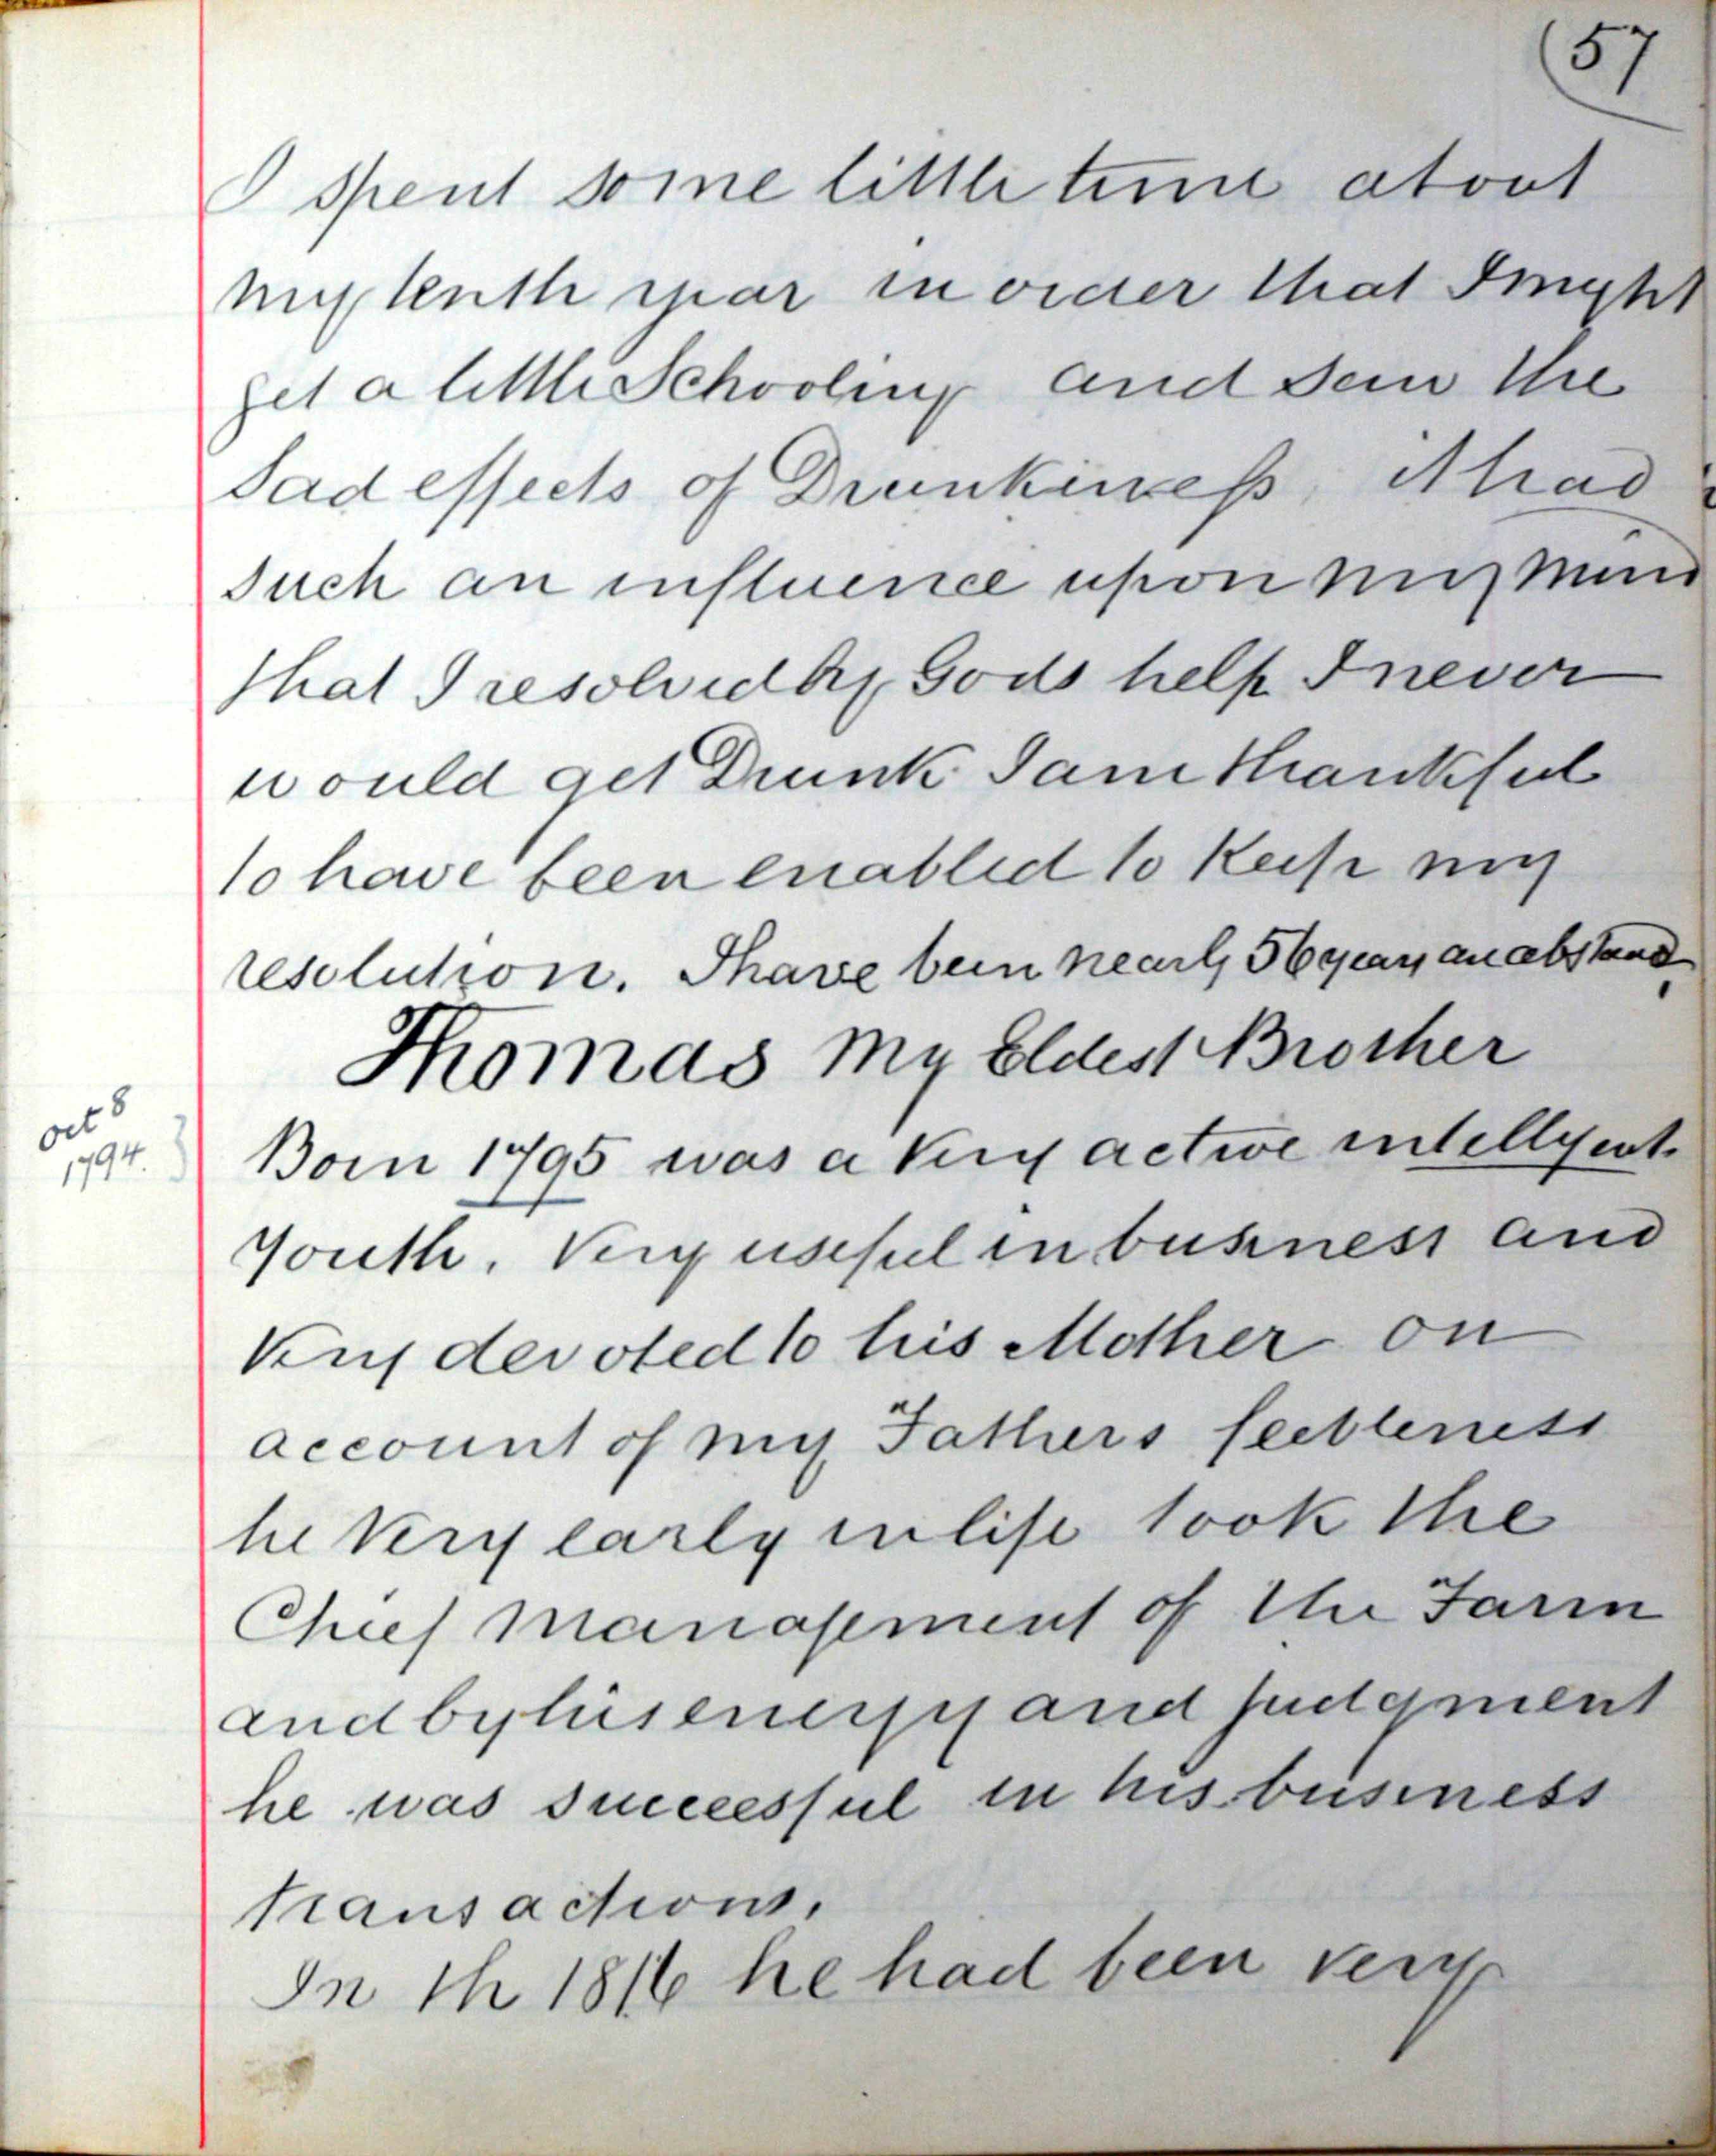 57
I spent some little time about
my tenth year in order that I might
get a little Schooling and saw the
Sad effects of Drunkeness, it had
such an influence upon my mind
that I resolved by Gods help I never
would get Drunk I am thankful
to have been enabled to Keep my
resolution. I have been nearly 56 years an
Thomas My Eldest Brother
Oct 8
1794.
Born 1795 was a Very active intelligent
Youth. Very useful in business and
Very devoted to his Mother on
account of my Fathers feebleness
he Very early in life took the
Chief Management of the Farm
and by his energy and judgment
he was successful in his business
transactions.
In th 1816 he had been very